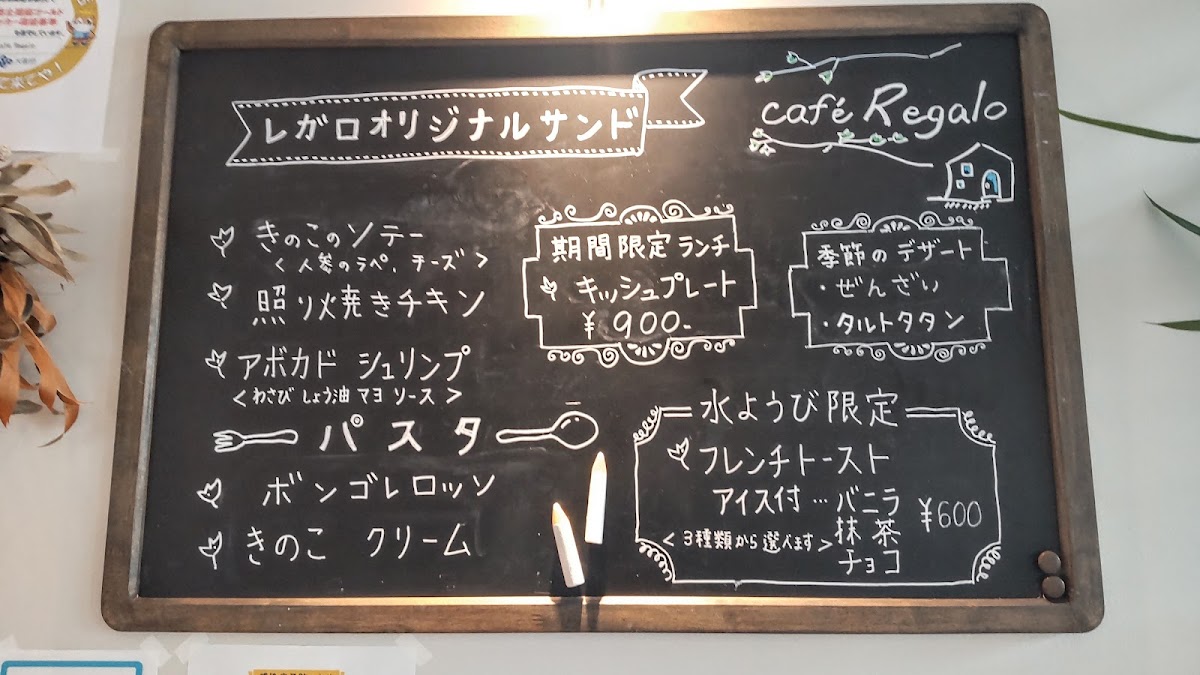 レガロオリジナルサンド
café Regalo
きのこのソテー
<人参のラペ、チーズ>
照り焼きチキン
アボカド シュリンプ
<わさび しょう油 マヨ ソース>
パスタ
ボンゴレロッソ
きのこ クリーム
期間限定ランチ
キッシュプレート
¥900-
季節のデザート
・ぜんざい
・タルトタタン
水ようび限定
フレンチトースト
アイス付…バニラ
抹茶
チョコ
<3種類から選べます>
¥600